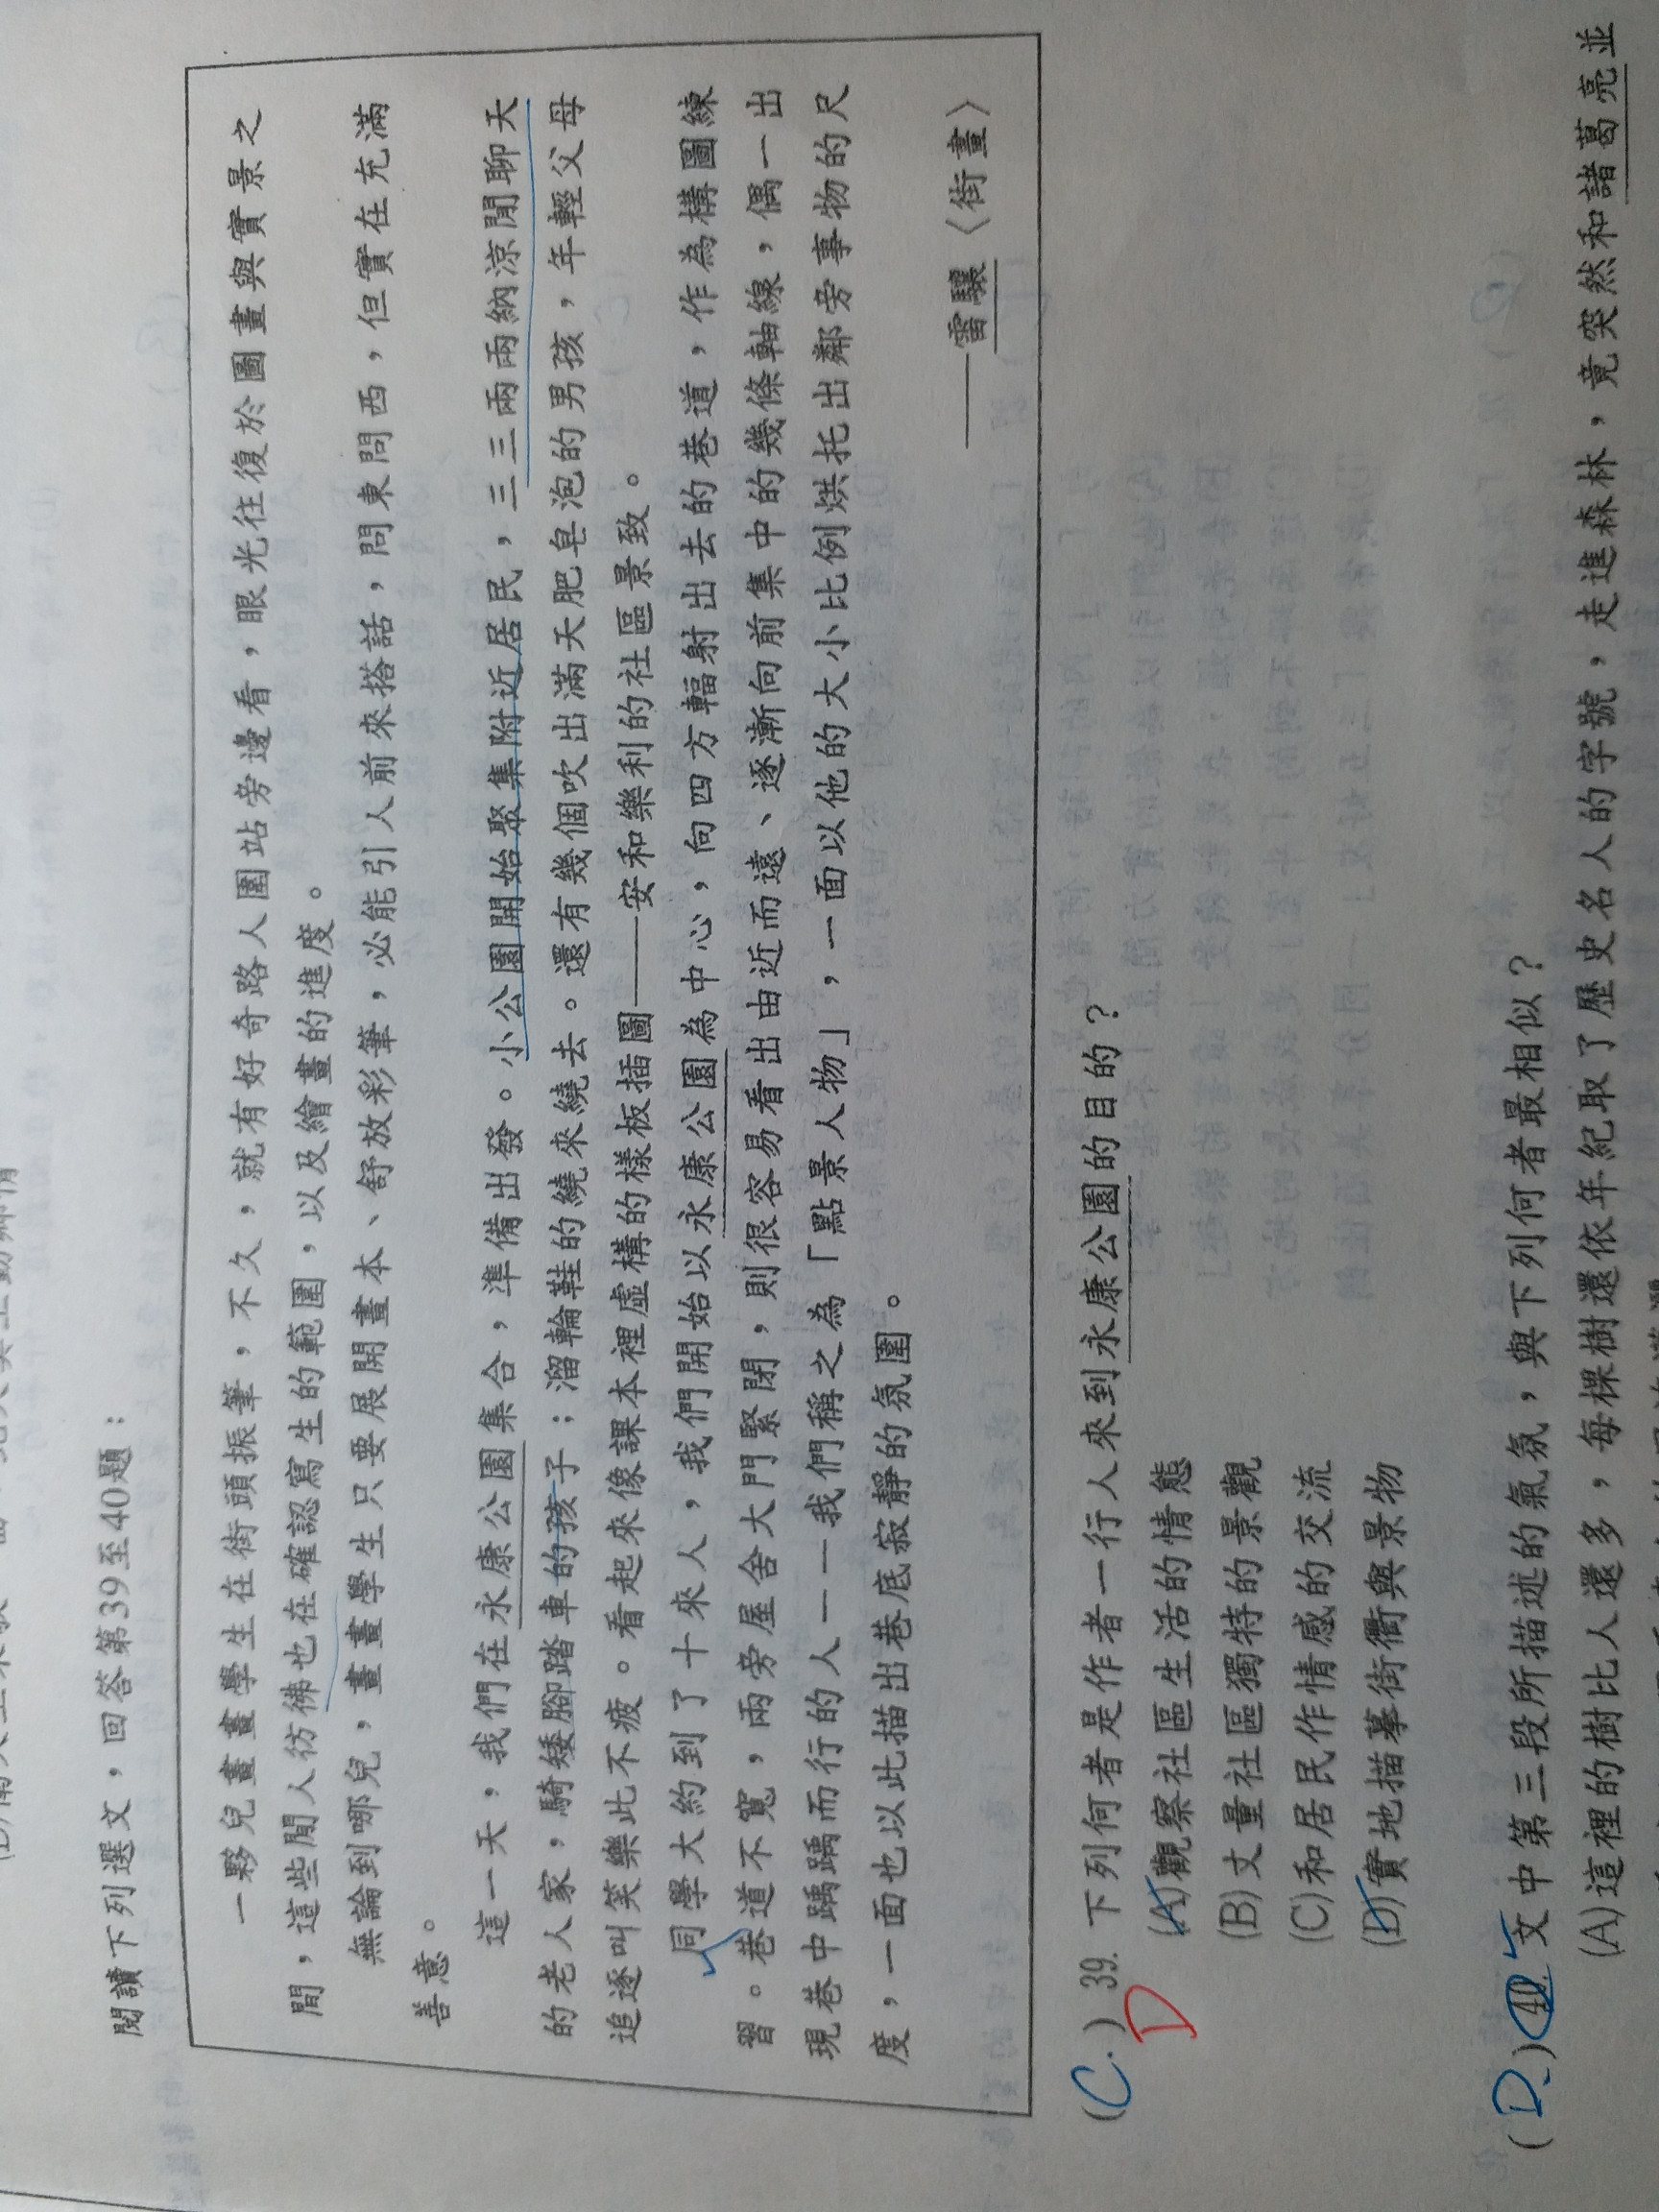 閱讀下列選文，回答第39至40題：
一夥兒畫畫學生在街頭振筆，不久，就有好奇路人圍站旁邊看，眼光往復於圖畫與實景之
間，這些閒人彷彿也在確認寫生的範圍，以及繪畫的進度。
無論到哪兒，畫畫學生只要展開畫本、舒放彩筆，必能引人前來搭話，問東問西，但實在充滿
善意。
這一天，我們在永康公園集合，準備出發。小公園開始聚集附近居民，三三兩兩納涼閒聊天
的老人家，騎矮腳踏車的孩子；溜輪鞋的繞來繞去。還有幾個吹出滿天肥皂泡的男孩，年輕父母
追逐叫笑樂此不疲。看起來像課本裡虛構的樣板插圖——安和樂利的社區景致。
同學大約到了十來人，我們開始以永康公園為中心，向四方輻射出去的巷道，作為構圖練
習。巷道不寬，兩旁屋舍大門緊閉，則很容易看出由近而遠、逐漸向前集中的幾條軸線，偶一出
現巷中踽踽而行的人——我們稱之為「點景人物」，一面以他的大小比例烘托出鄰旁事物的尺
度，一面也以此描出巷底寂靜的氛圍。
——雷驤〈街畫〉
(C.) 39. 下列何者是作者一行人來到永康公園的目的？
D
(A)觀察社區生活的情態
(B)丈量社區獨特的景觀
(C)和居民作情感的交流
(D)實地描摹街衢與景物
(D.) 40. 文中第三段所描述的氣氛，與下列何者最相似？
(A)這裡的樹比人還多，每棵樹還依年紀取了歷史名人的字號，走進森林，竟突然和諸葛亮並